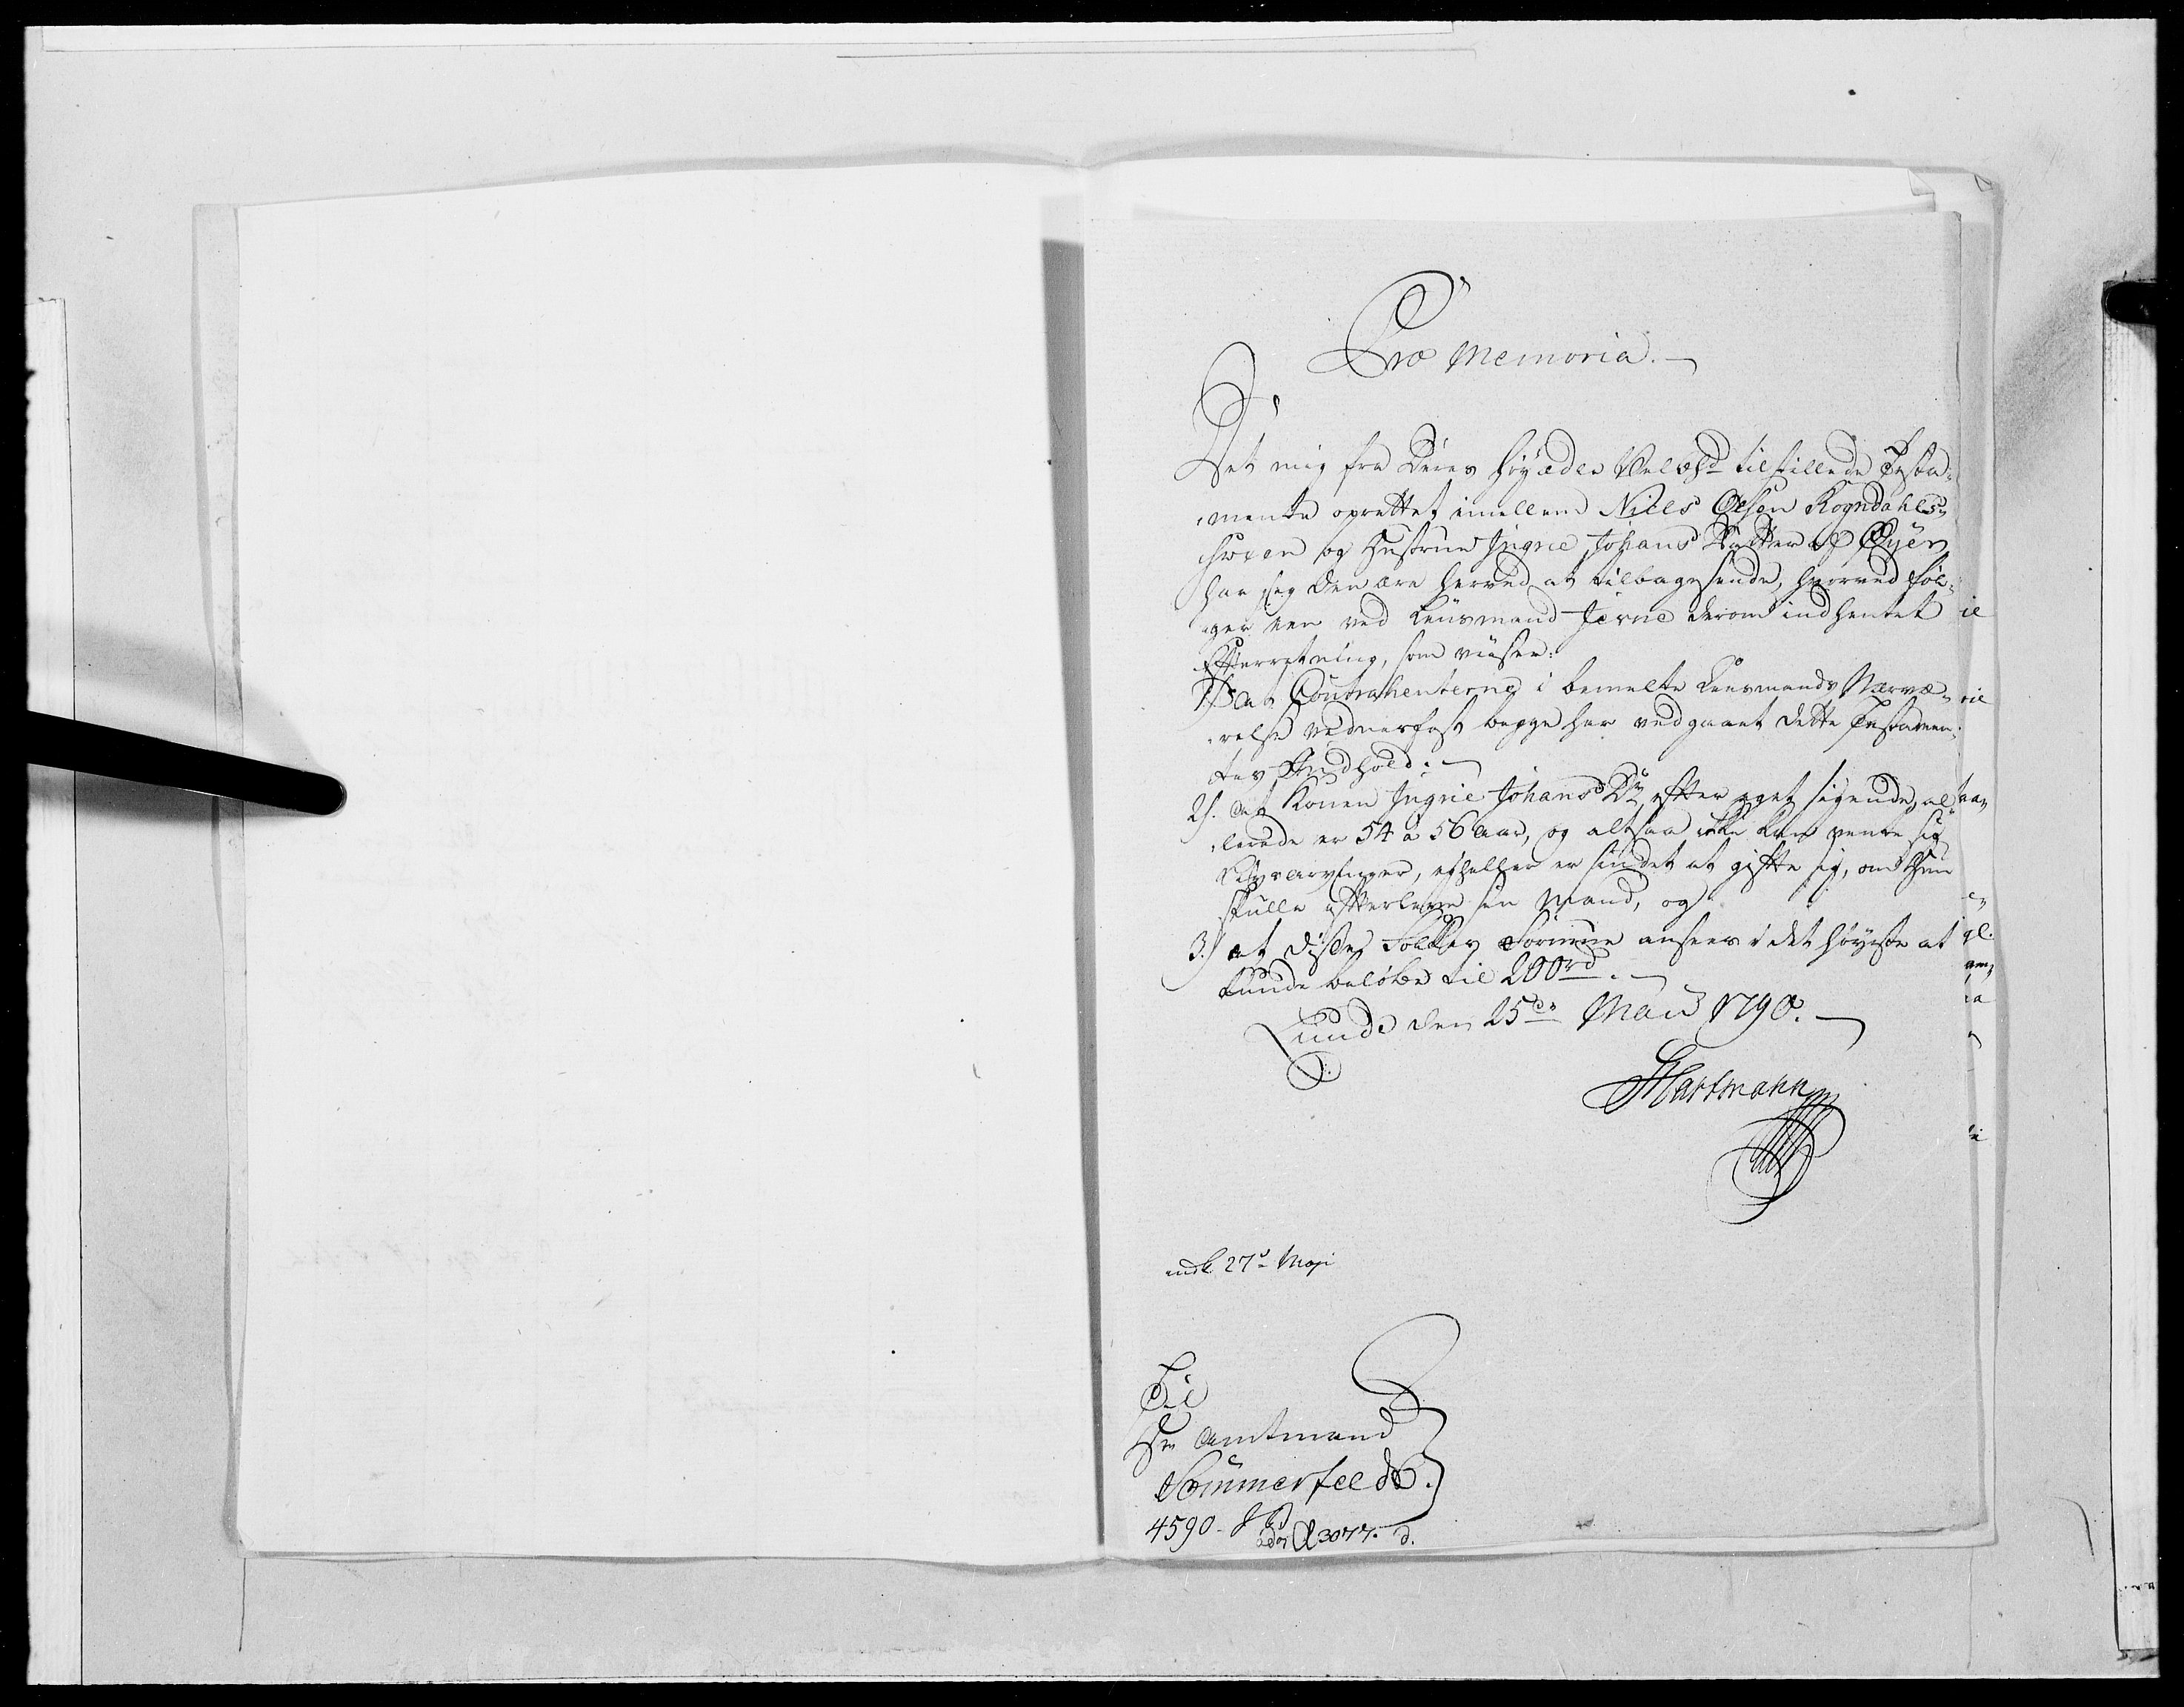 Pro Memoria.
Det mig fra Deres Høyædle Velbhd tilstillede Testa-
mente oprettet imellem Niels Olsen Rogndahls-
Sween og Hustrue Ingrie Johans Datter af Øyer
har jeg den ære herved at tilbagesende, hvorved føl-
ger een ved Lensmand Jerne derom indhentet
Efterretning, som viiser:
1) at Contrahenterne i bemelte Lensmands Nærvæ-
relse vednerfast begge har vedgaaet dette Testamen-
tes Indhold.
2). at Konen Ingrie Johans Dtr efter eget sigende, al-
lerede er 54 a 56 Aar, og altsaa ikke kan vente sig
Livsarvinger, ej heller er sindet at gifte sig, om Hun
skulle efterleve sin Mand, og
3.) at disse Folkes Formue ansees i det høyeste at
kunde beløbe til 200rd.
Lunde den 25de Maii 1790.
Hartmann
indk 27d Maji
Til
Hr Amtmand
Sommerfeldt.
4590.
3077. d.